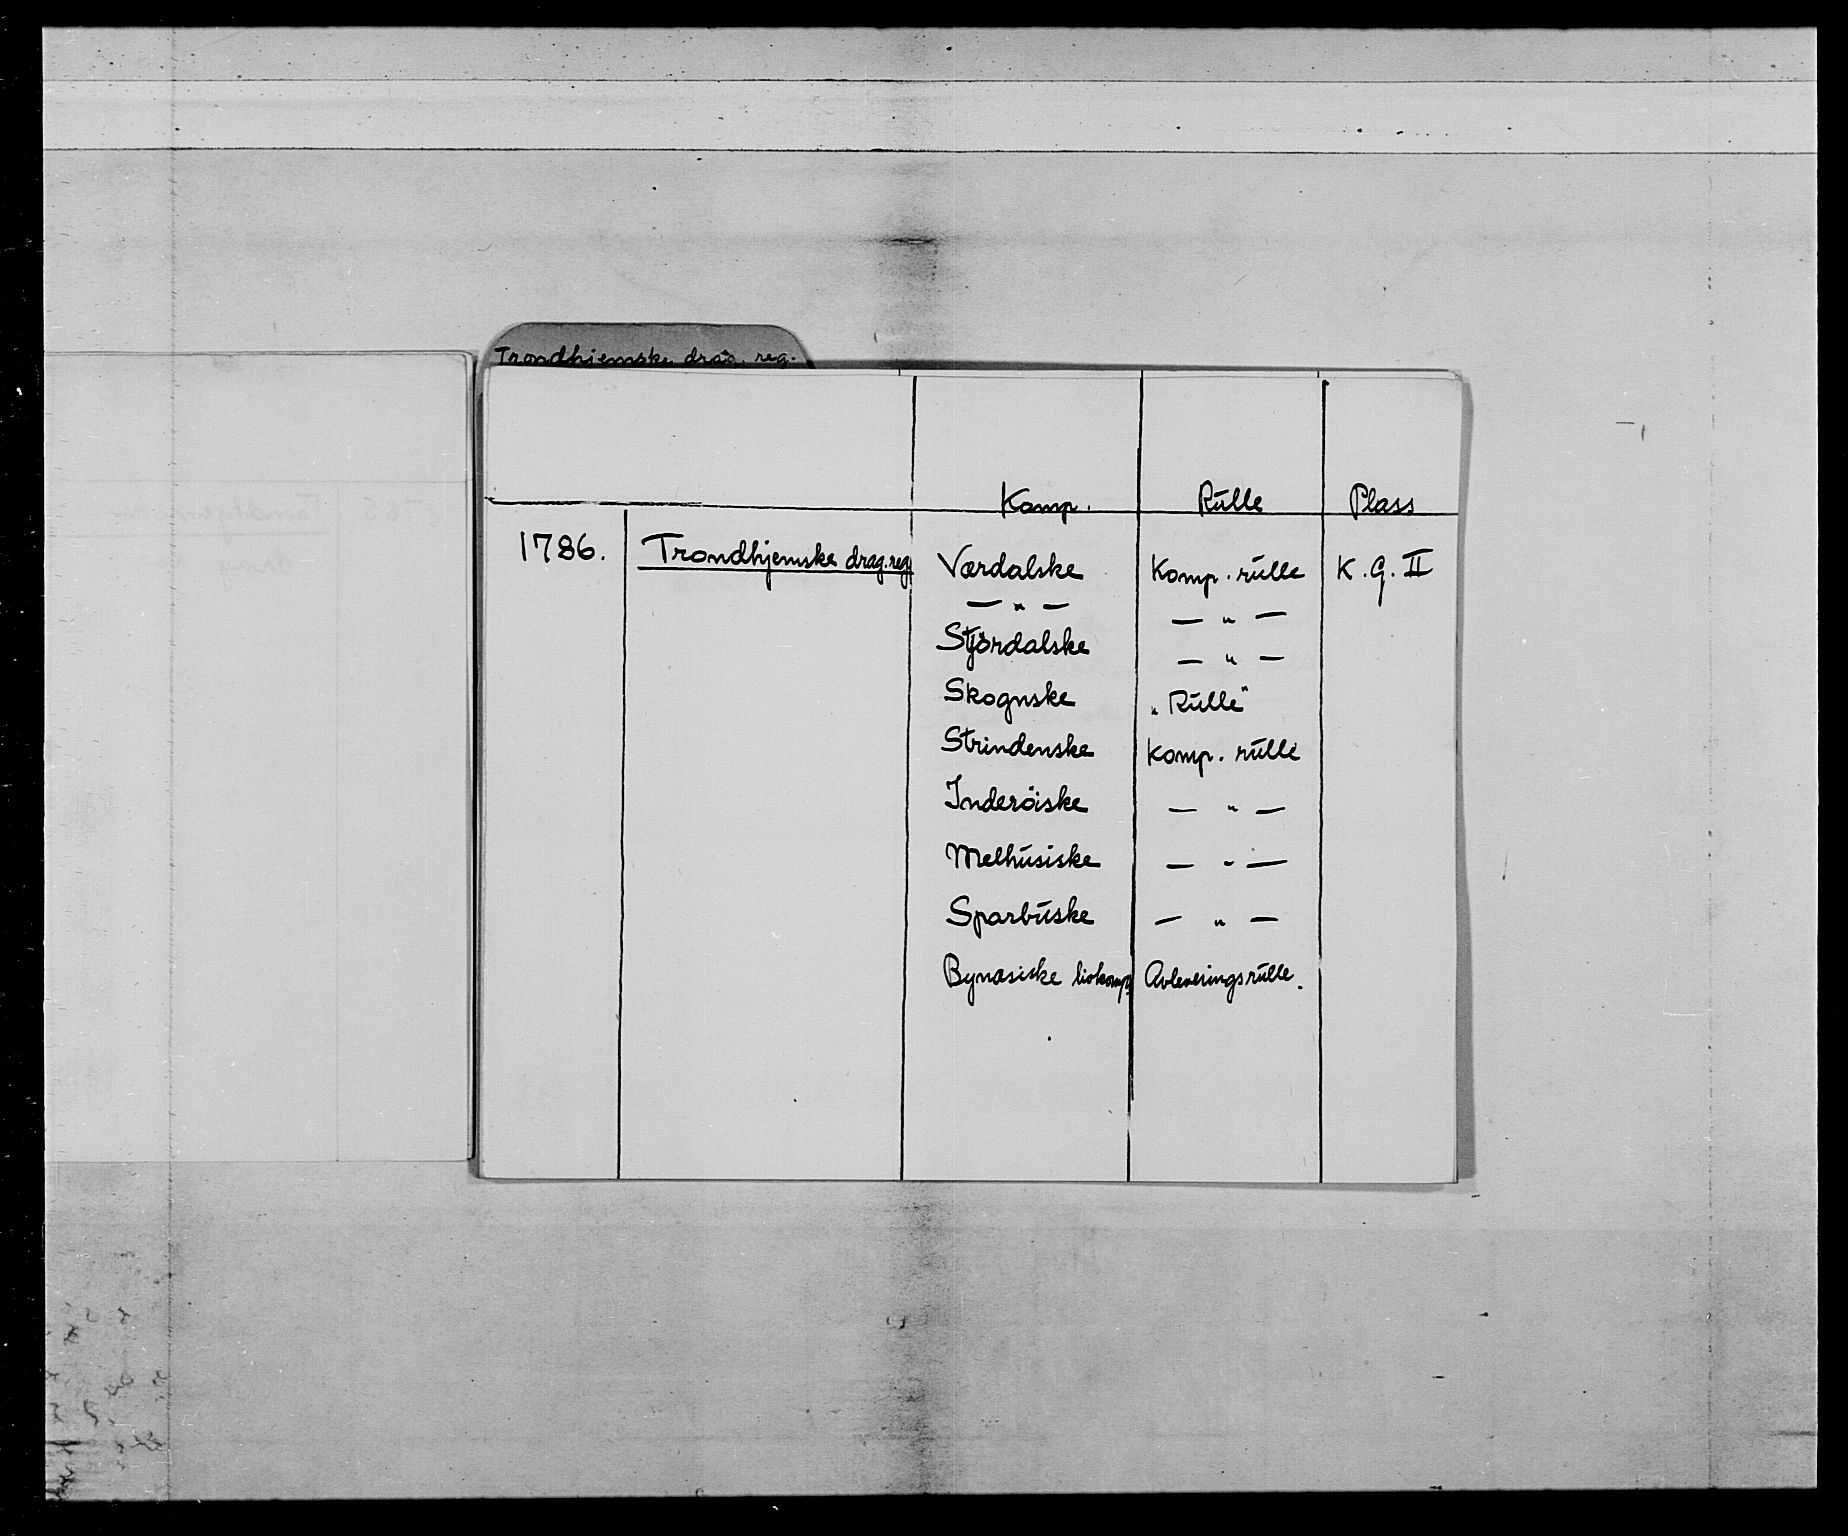 Trondhjemske drag. reg.
Komp. Rulle Plass
1786. Trondhjemske drag. reg. Værdalske Komp. rulle K. G. II
— " — — " —
Stjördalske — " —
Skognske "Rulle"
Strindenske Komp. rulle
Inderöiske — " —
Melhusiske — " —
Sparbuske — " —
Bynæsiske livkomp. Avleveringsrulle.